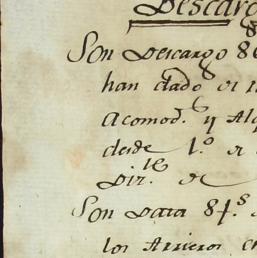 Descarg
Son Descargo 86
han dado
Acomod.ˢ y Alq
desde 1.º
Dir.ᵗᵉ de
Son Data 84.ˢ
los Arrieros en